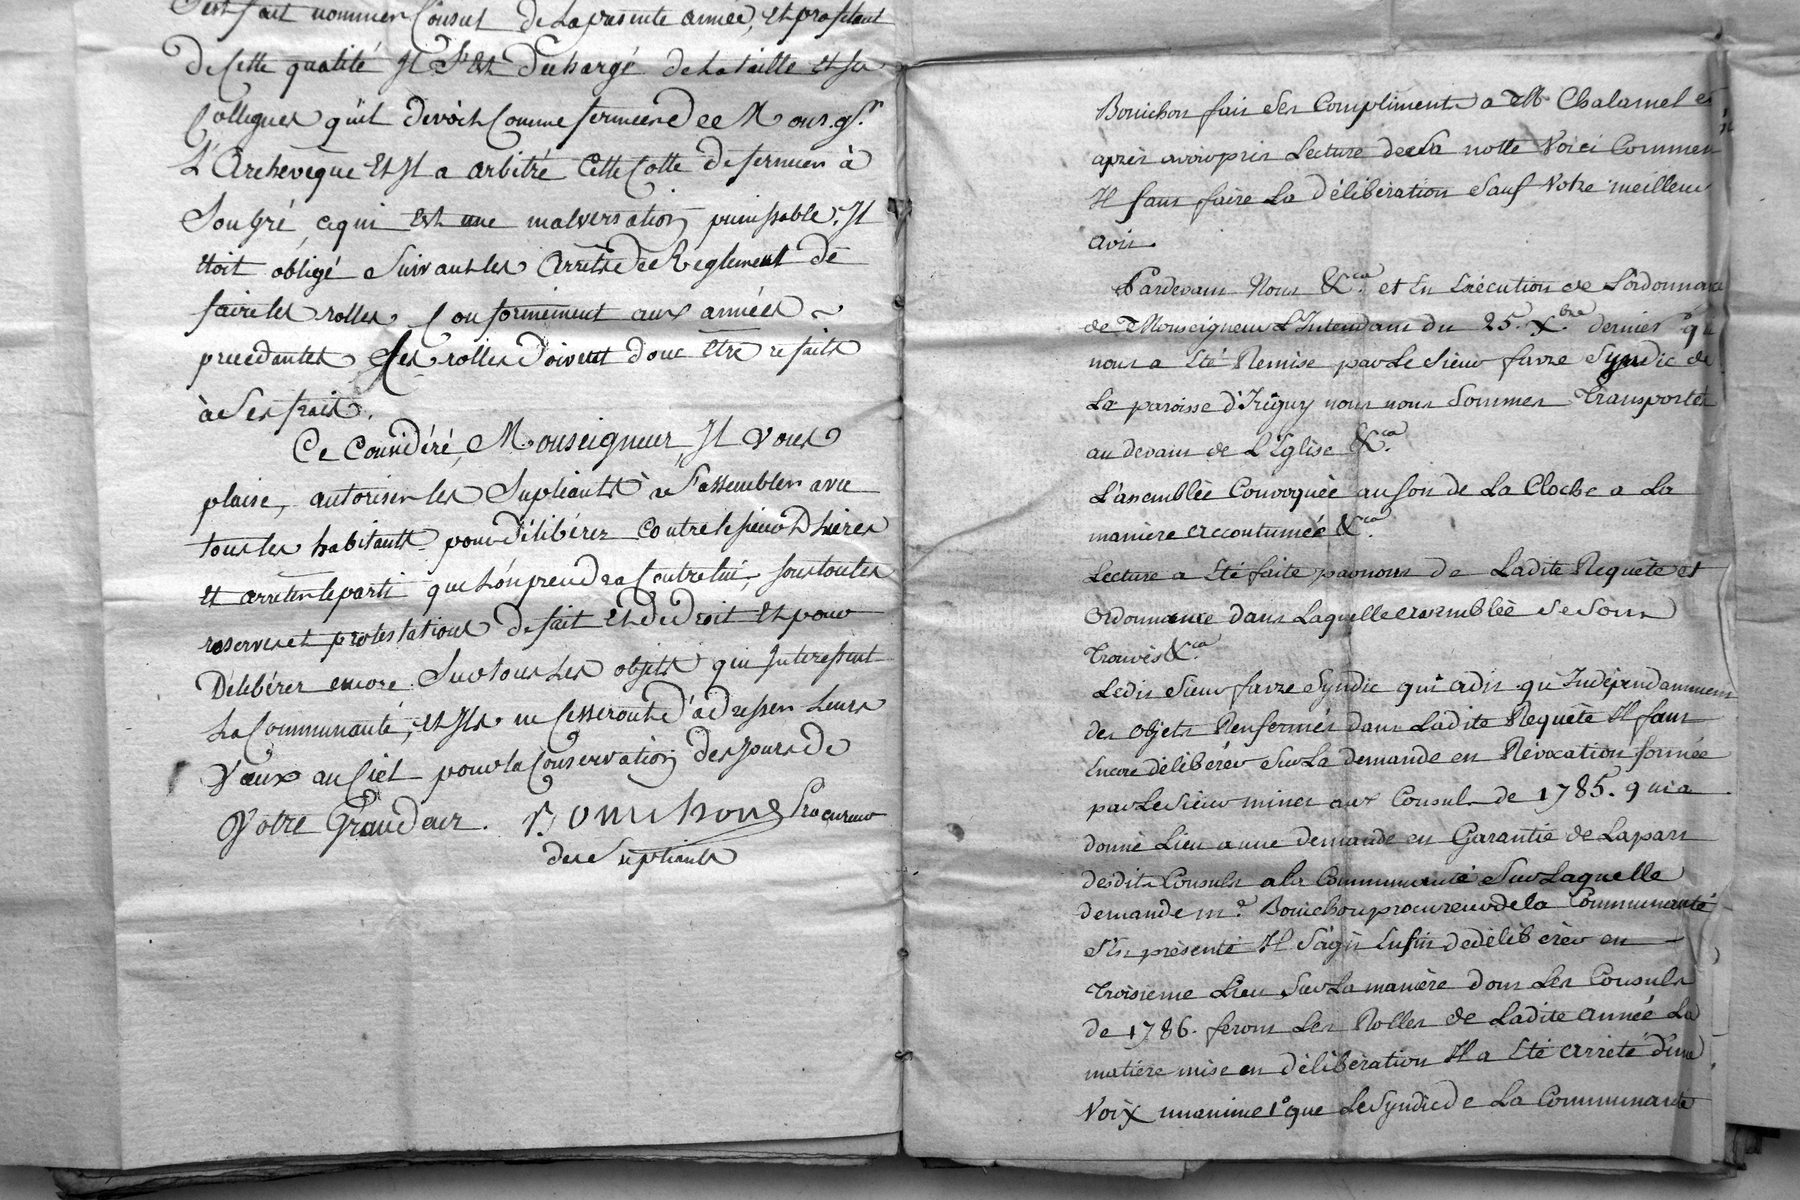 s'est fait nommer Consul de la presente année, et profitant
de Cette qualité Il s'Est déchargé de la taille et ses
Collegues qu'il devoit Comme fermier de Monsgr.
L'Archeveque Et Il a arbitré Cette Cotte de fermier à
Son Gré, ce qui Est une malversation punissable, Il
étoit obligé Suivant les Arrets de Reglement de
faire les rolles Conformément aux années
precedantes Ces rolles doivent donc Etre refaits
à Ses frais.
Ce Considéré, Monseigneur, Il vous
plaise, autoriser les Supliants à S'assembler avec
tous les habitants pour délibérer Contre le sieur Dhieres
et arreter le parti que L'on prendra Contre lui, sous toutes
reserves et protestations de fait Et de droit Et pour
Délibérer encore Sur tous les objets qui Interessent
La Communauté, et Ils ne Cesseront d'adresser Leurs
Vœux au Ciel pour la Conservation des Jours de
Votre Grandeur. Bouichon Procureur
des Supliants
Bouichon fait Ses Compliments a Mr Chalamel et
après avoir pris Lecture de la notte Voici Comment
Il faut faire La délibération Sauf Votre meilleur
avis.
Pardevant Nous &ca. et En Exécution de L'ordonnance
de Monseigneur L'Intendant du 25. Xbre. dernier qui
nous a Eté Remise par Le Sieur favre Syndic de
La paroisse d'Irigny nous nous Sommes Transportés
au devant de L'Eglise &ca.
L'assemblée Convoquée au Son de La Cloche a La
maniere accoutumée &ca.
Lecture a Eté faite par nous de Ladite Requête et
ordonnance dans Laquelle assemblée Se Sont
Trouvés &ca.
Ledit Sieur favre Syndic qui a dit qu'Indépendamment
des objets Renfermés dans Ladite Requête Il faut
Encore délibérer Sur La demande en Révocation formée
par Le Sieur miner aux Consuls de 1785. qui a
donné Lieu a une demande en Garantie de La part
desdits Consuls a la Communauté Sur Laquelle
demande me. Bouichon procureur de la Communauté
s'Est présenté Il S'agit Enfin de délibérer en
Troisieme Lieu Sur La maniere dont Les Consuls
de 1786. feront Les Rolles de Ladite année La
matiere mise en délibération Il a Eté arrêté d'une
Voix unanime 1° que Le Syndic de La Communauté